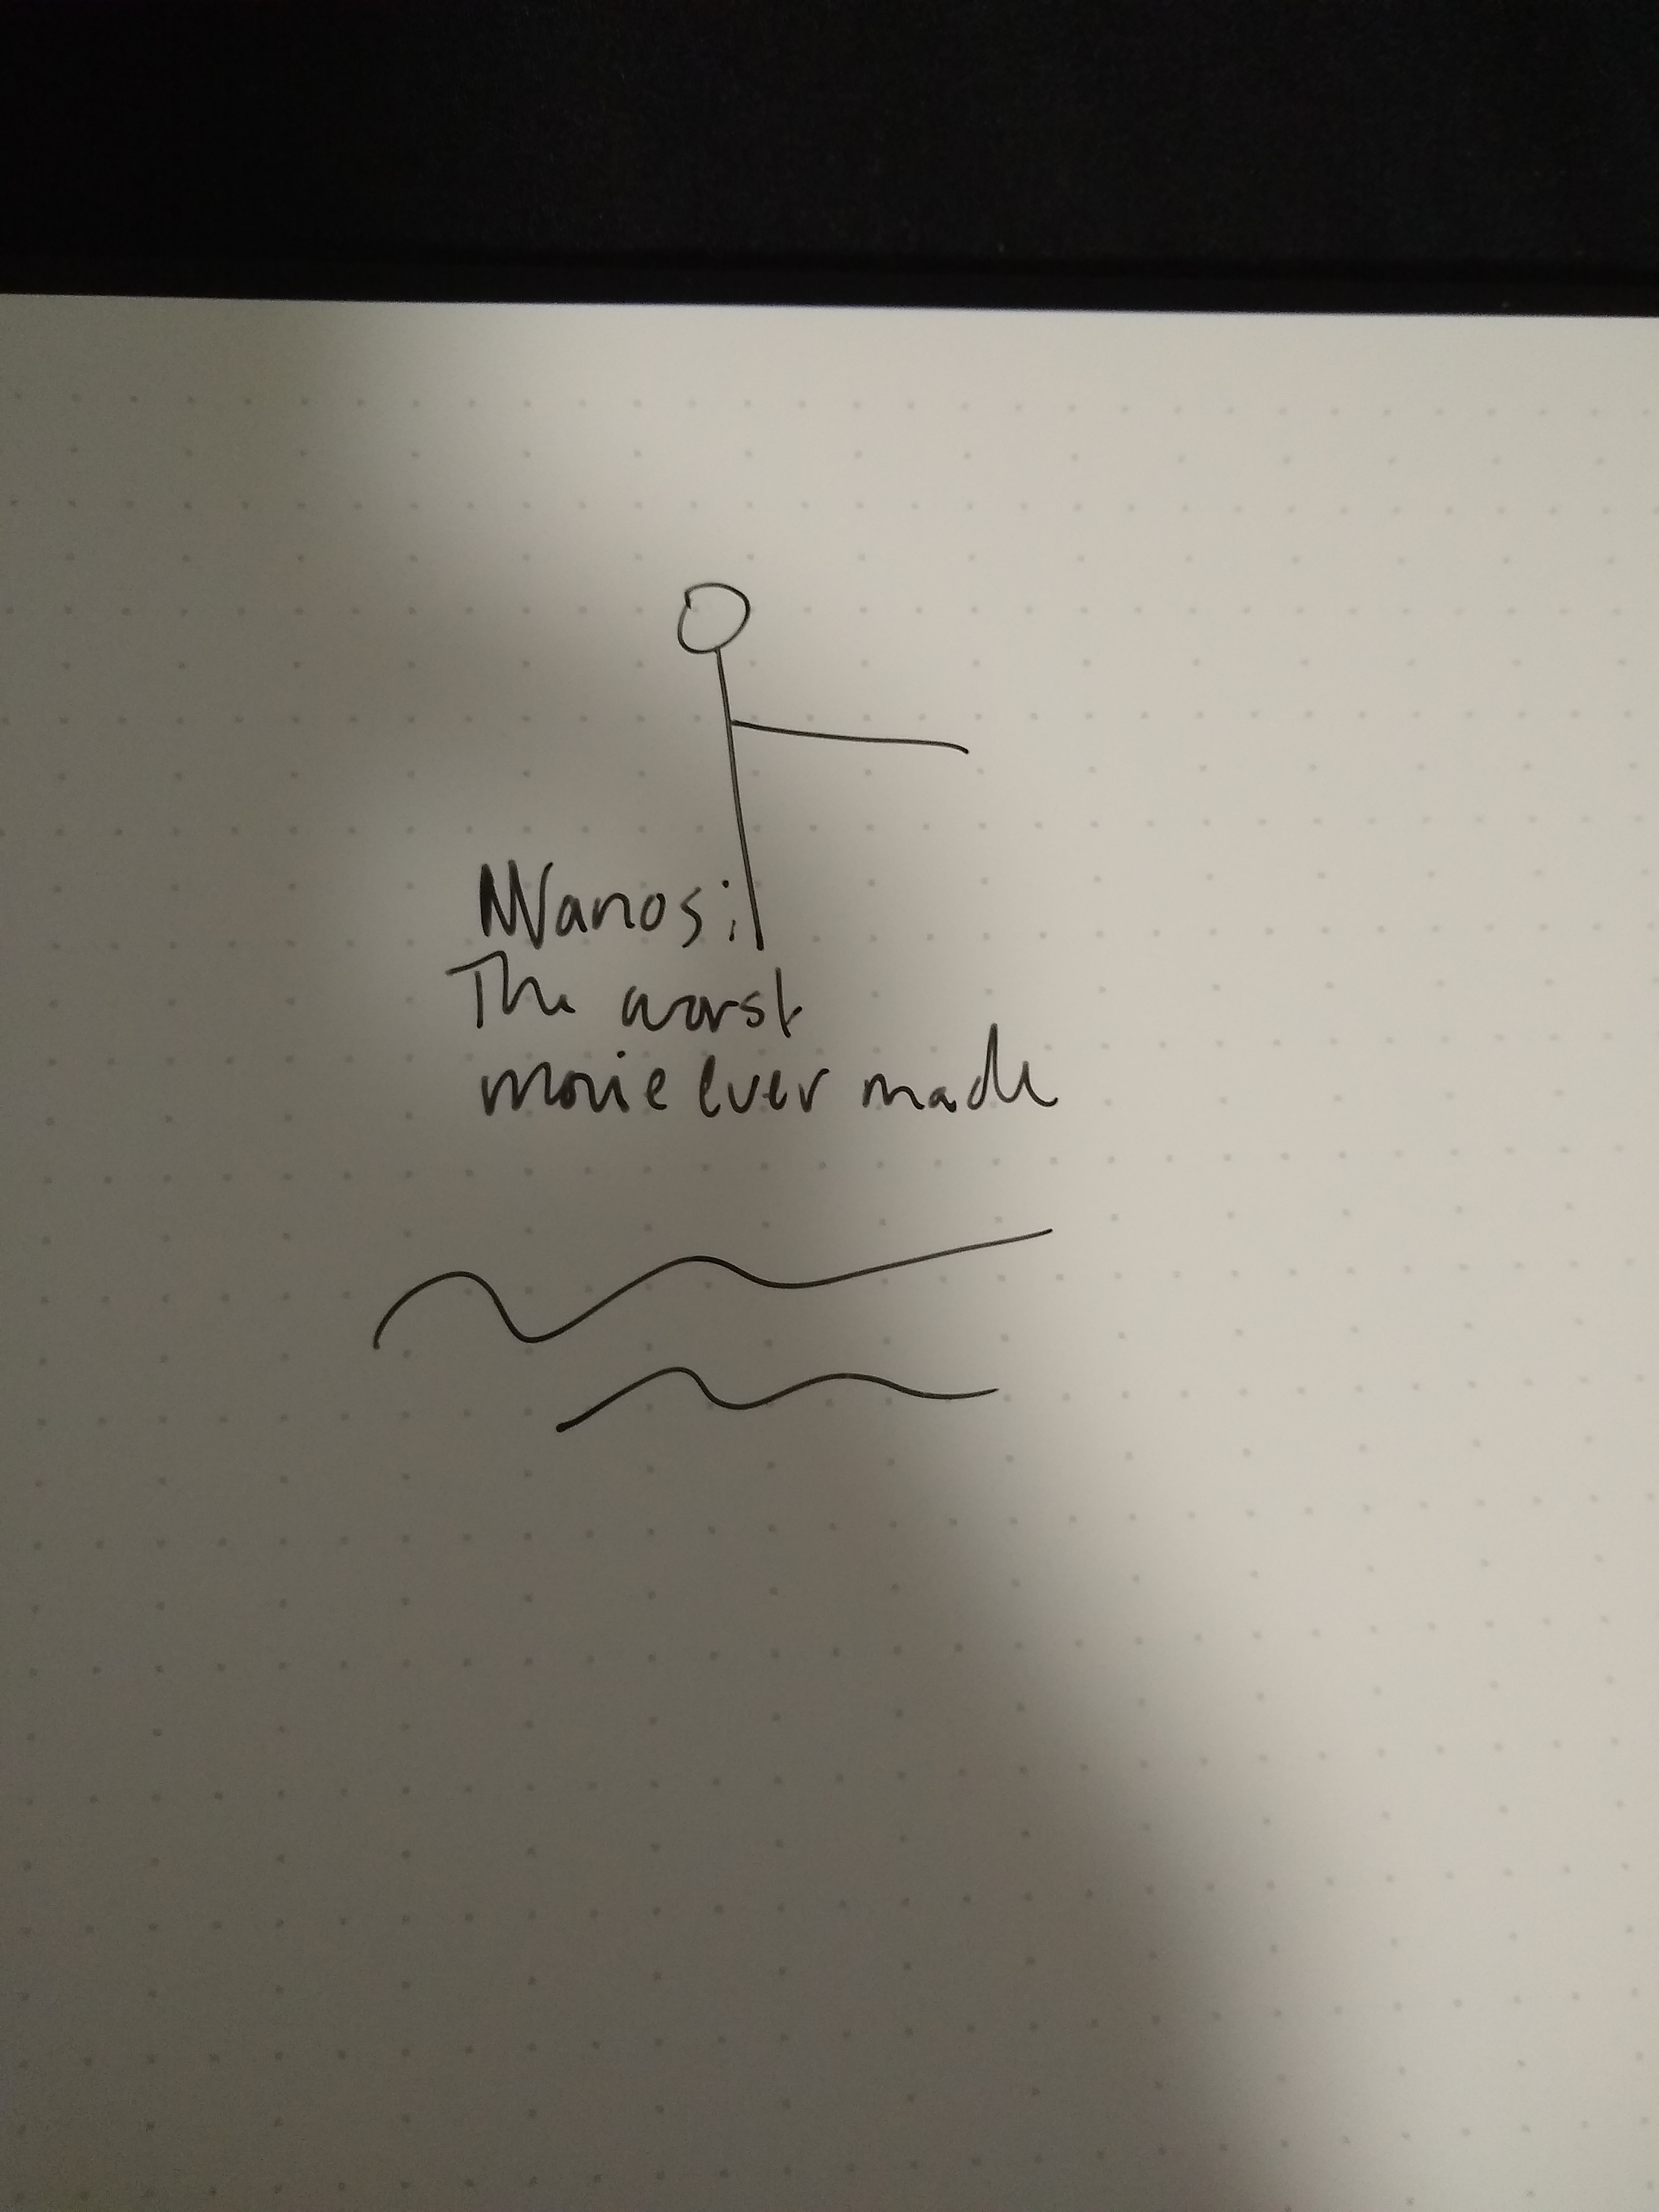 Manos:
The worst
movie ever made